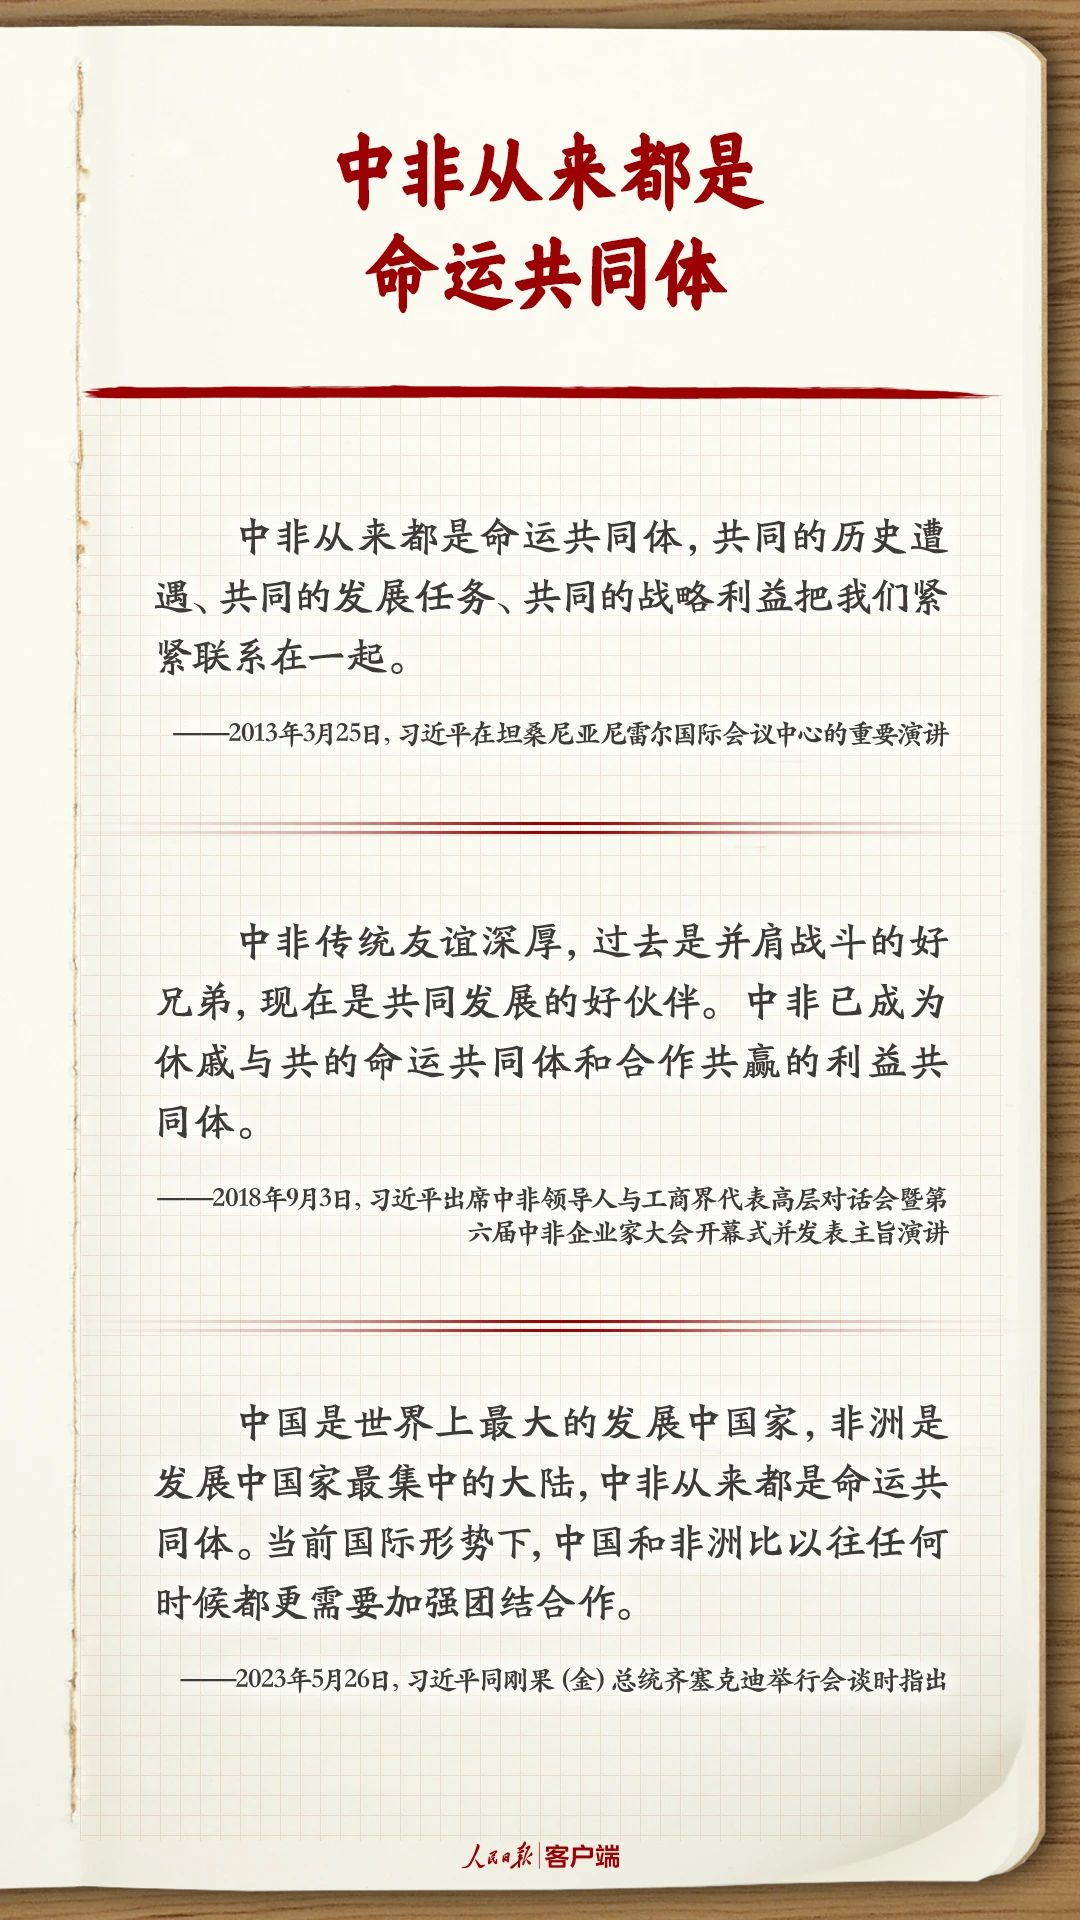 中非从来都是
命运共同体
中非从来都是命运共同体，共同的历史遭
遇、共同的发展任务、共同的战略利益把我们紧
紧联系在一起。
——2013年3月25日，习近平在坦桑尼亚尼雷尔国际会议中心的重要演讲
中非传统友谊深厚，过去是并肩战斗的好
兄弟，现在是共同发展的好伙伴。中非已成为
休戚与共的命运共同体和合作共赢的利益共
同体。
——2018年9月3日，习近平出席中非领导人与工商界代表高层对话会暨第
六届中非企业家大会开幕式并发表主旨演讲
中国是世界上最大的发展中国家，非洲是
发展中国家最集中的大陆，中非从来都是命运共
同体。当前国际形势下，中国和非洲比以往任何
时候都更需要加强团结合作。
——2023年5月26日，习近平同刚果（金）总统齐塞克迪举行会谈时指出
人民日报|客户端